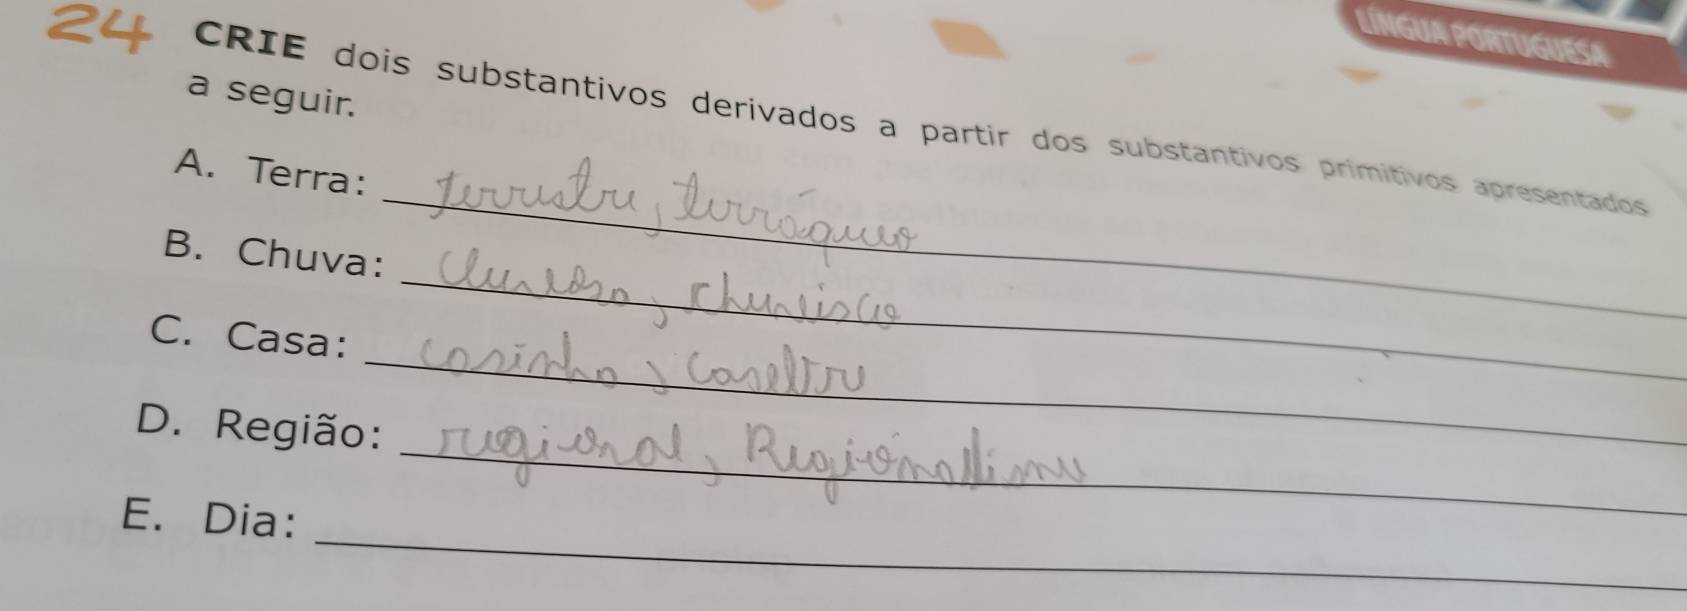 LÍNGUA PORTUGUESA
24 CRIE dois substantivos derivados a partir dos substantivos primitivos apresentados
a seguir.
A. Terra: terrestre, terráqueo
B. Chuva: chuvoso, chuvisco
C. Casa: casinha, casebre
D. Região: regional, Regionalismo
E. Dia: